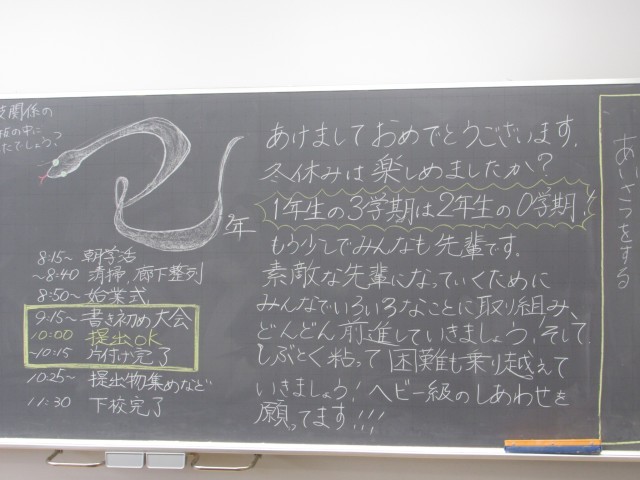 関係の
の中に
たでしょう?
年
8:15~ 朝学活
~8:40 清掃、廊下整列
8:50~ 始業式
9:15~ 書き初め大会
10:00 提出OK
~10:15 片付け完了
10:25~ 提出物集めなど
11:30 下校完了
あけましておめでとうございます。
冬休みは楽しめましたか?
1年生の3学期は2年生の0学期!!
もう少しでみんなも先輩です。
素敵な先輩になっていくために
みんなでいろいろなことに取り組み、
どんどん前進していきましょう。そして
しぶとく粘って困難も乗り越えて
いきましょう!ヘビー級のしあわせを
願ってます!!!
あいさつをする